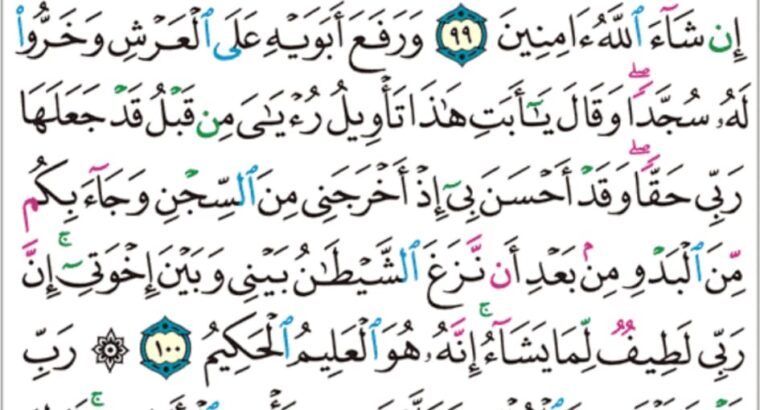 إِن شَآءَ ٱللَّهُ ءَامِنِينَ ٩٩ وَرَفَعَ أَبَوَيْهِ عَلَى ٱلْعَرْشِ وَخَرُّوا۟
لَهُۥ سُجَّدًۭا ۖ وَقَالَ يَـٰٓأَبَتِ هَـٰذَا تَأْوِيلُ رُءْيَـٰىَ مِن قَبْلُ قَدْ جَعَلَهَا
رَبِّى حَقًّۭا ۖ وَقَدْ أَحْسَنَ بِىٓ إِذْ أَخْرَجَنِى مِنَ ٱلسِّجْنِ وَجَآءَ بِكُم
مِّنَ ٱلْبَدْوِ مِنۢ بَعْدِ أَن نَّزَغَ ٱلشَّيْطَـٰنُ بَيْنِى وَبَيْنَ إِخْوَتِىٓ ۚ إِنَّ
رَبِّى لَطِيفٌۭ لِّمَا يَشَآءُ ۚ إِنَّهُۥ هُوَ ٱلْعَلِيمُ ٱلْحَكِيمُ ١٠٠ ۞ رَبِّ